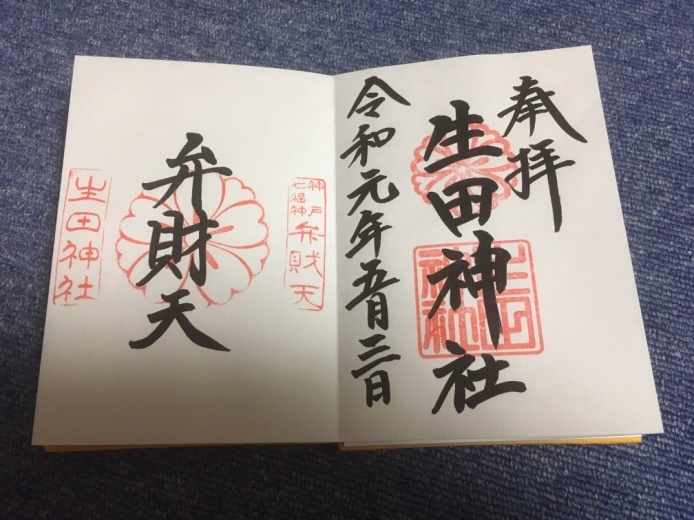 奉拝
生田神社
生田神社
令和元年五月三日
神戸
七福神
弁財天
弁財天
生田神社